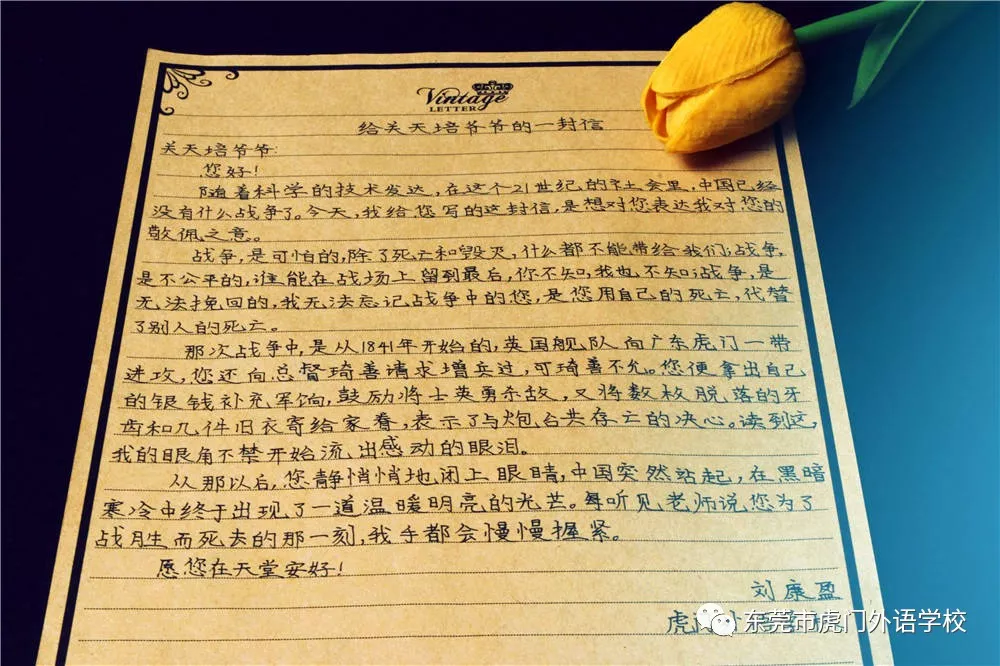 Vintage
LETTER
给关天培爷爷的一封信
关天培爷爷:
您好!
随着科学的技术发达,在这个21世纪的社会里,中国已经
没有什么战争了。今天,我给您写的这封信,是想对您表达我对您的
敬佩之意。
战争,是可怕的,除了死亡和毁灭,什么都不能带给我们;战争,
是不公平的,谁能在战场上留到最后,你不知,我也不知;战争,是
无法挽回的,我无法忘记战争中的您,是您用自己的死亡,代替
了别人的死亡。
那次战争中,是从1841年开始的,英国舰队向广东虎门一带
进攻,您还向总督琦善请求增兵过,可琦善不允。您便拿出自己
的银钱补充军饷,鼓励将士英勇杀敌,又将数枚脱落的牙
齿和几件旧衣寄给家眷,表示了与炮台共存亡的决心。读到这,
我的眼角不禁开始流出感动的眼泪。
从那以后,您静悄悄地闭上眼睛,中国突然站起,在黑暗
寒冷中终于出现了一道温暖明亮的光芒。每听见老师说您为了
战胜而死去的那一刻,我手都会慢慢握紧。
愿您在天堂安好!
刘康盈
虎
东莞市虎门外语学校